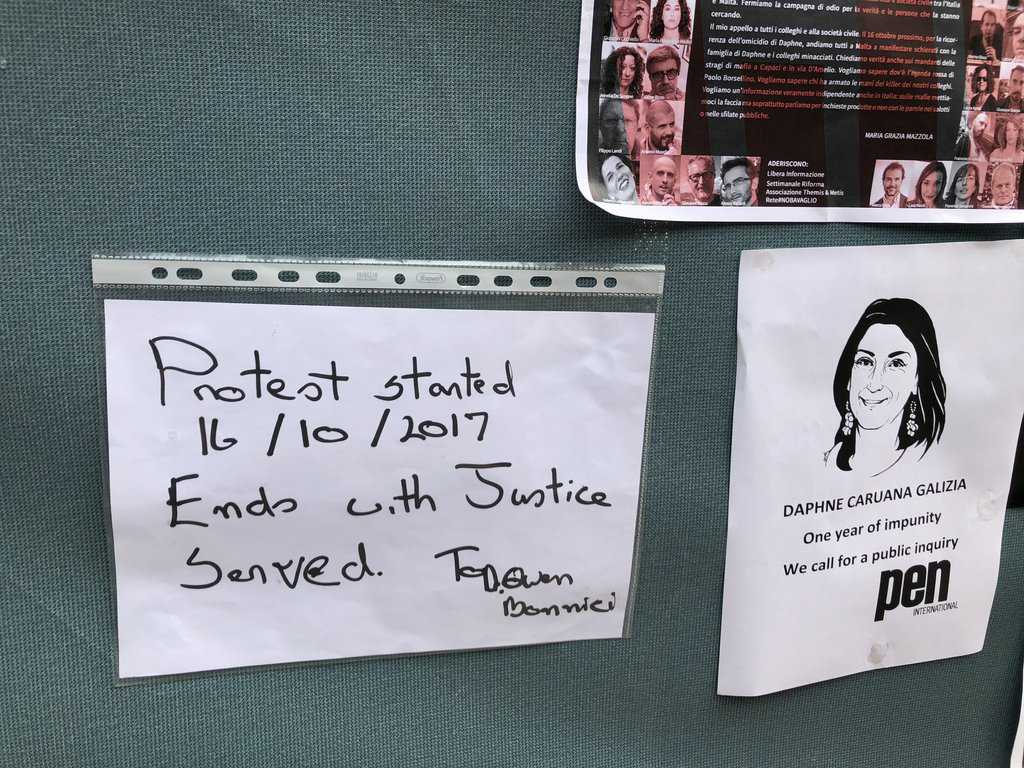 e Malta. Fermiamo la campagna di odio per la verità e le persone che la stanno
cercando.
Il mio appello a tutti i colleghi e alla società civile. Il 16 ottobre prossimo, per la ricor-
renza dell'omicidio di Daphne, andiamo tutti a Malta a manifestare schierati con la
famiglia di Daphne e i colleghi minacciati. Chiediamo verità anche sui mandanti delle
stragi di mafia a Capaci e in via D'Amelio. Vogliamo sapere dov'è l'agenda rossa di
Paolo Borsellino. Vogliamo sapere chi ha armato le mani dei killer dei nostri colleghi.
Vogliamo un'informazione veramente indipendente anche in Italia: sulle mafie mettia-
moci la faccia ma soprattutto parliamo per inchieste prodotte e non con le parole nei salotti
o nelle sfilate pubbliche.
MARIA GRAZIA MAZZOLA
ADERISCONO:
Libera Informazione
Settimanale Riforma
Associazione Themis & Metis
Rete#NOBAVAGLIO
Filippo Landi
Protest started
16/10/2017
Ends with Justice
Served.
Bonnici
DAPHNE CARUANA GALIZIA
One year of impunity
We call for a public inquiry
pen
INTERNATIONAL